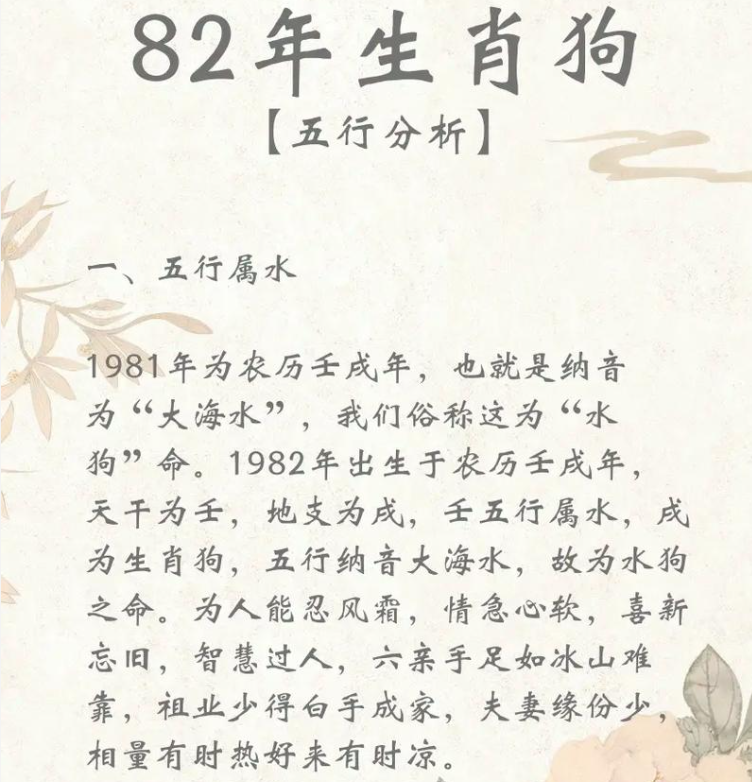 82年生肖狗
【五行分析】
一、五行属水
1981年为农历壬戌年，也就是纳音
为“大海水”，我们俗称这为“水
狗”命。1982年出生于农历壬戌年，
天干为壬，地支为戌，壬五行属水，戌
为生肖狗，五行纳音大海水，故为水狗
之命。为人能忍风霜，情急心软，喜新
忘旧，智慧过人，六亲手足如冰山难
靠，祖业少得白手成家，夫妻缘份少，
相量有时热好来有时凉。